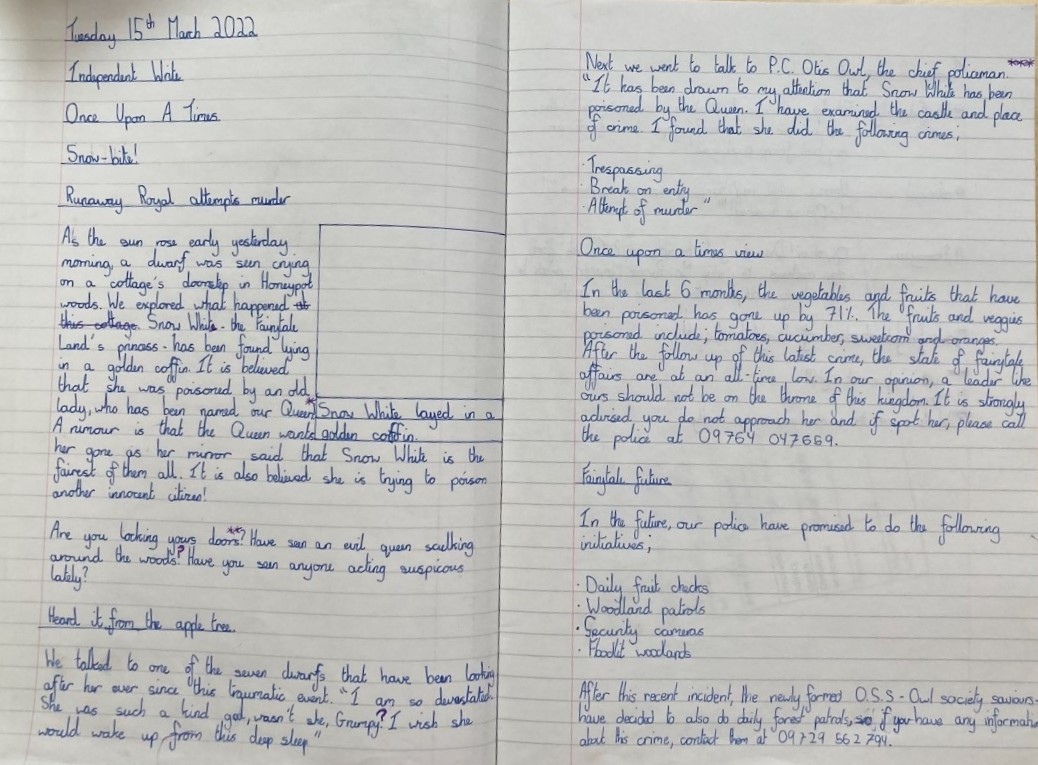 Tuesday 15th March 2022
Independent Write
Once Upon A Times
Snow-bite!
Runaway Royal attempts murder
As the sun rose early yesterday
morning, a dwarf was seen crying
on a cottage's doorstep in Honeypot
woods. We explored what happened at
this cottage. Snow White - the Fairytale
Land's princess - has been found lying
in a golden coffin. It is believed
that she was poisoned by an old
lady, who has been named our Queen*
A rumour is that the Queen wants
her gone as her mirror said that Snow White is the
fairest of them all. It is also believed she is trying to poison
another innocent citizen!
Snow White layed in a
golden coffin.
Are you locking yours doors**? Have seen an evil queen sculking
around the woods? Have you seen anyone acting suspicous
lately?
Heard it from the apple tree.
We talked to one of the seven dwarfs that have been looking
after her ever since this traumatic event. "I am so devastated.
She was such a kind gal, wasn't she, Grumpy? I wish she
would wake up from this deep sleep"
Next we went to talk to P.C. Otis Owl, the chief policman. ***
"It has been drawn to my attention that Snow White has been
poisoned by the Queen. I have examined the castle and place
of crime. I found that she did the following crimes;
· Trespassing
· Break on entry
· Attempt of murder"
Once upon a times view
In the last 6 months, the vegetables and fruits that have
been poisoned has gone up by 71%. The fruits and veggies
poisoned include; tomatoes, cucumber, sweetcorn and oranges.
After the follow up of this latest crime, the state of fairytale
affairs are at an all-time low. In our opinion, a leader like
ours should not be on the throne of this kingdom. It is strongly
advised you do not approach her and if spot her, please call
the police at 09764 047669.
Fairytale future
In the future, our police have promised to do the following
initiatives;
· Daily fruit checks
· Woodland patrols
· Security cameras
· Floodlit woodlands
After this recent incident, the newly formed O.S.S - Owl society saviours -
have decided to also do daily forest patrols, so, if you have any informatio
about this crime, contact them at 09729 562 794.